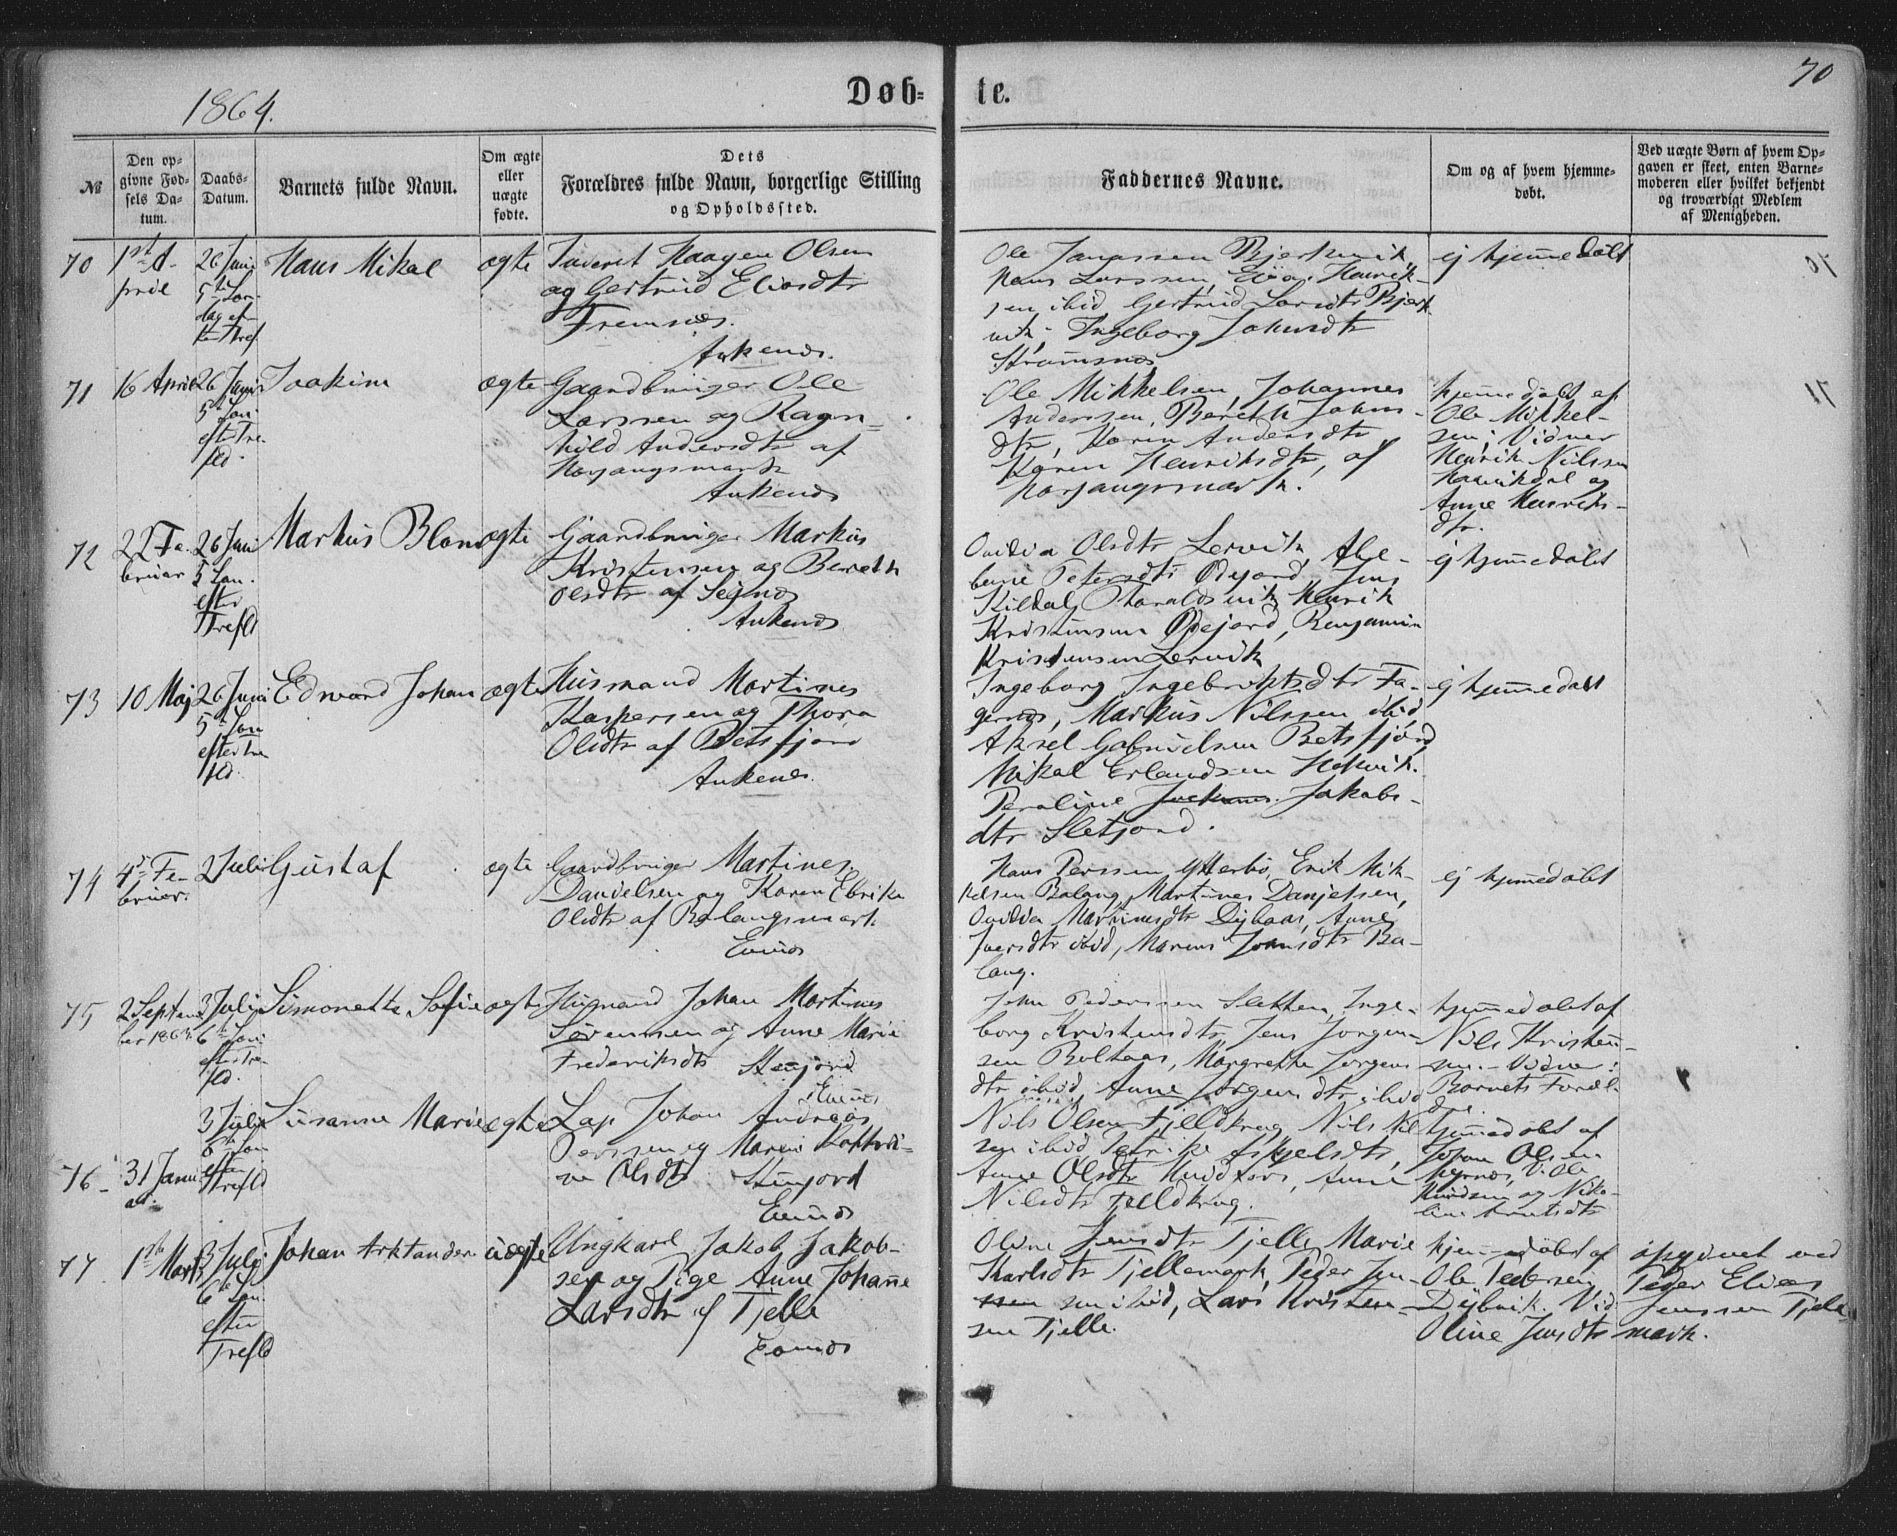 1864.
Døb-
te.
70
№
Den op-
givne Fød-
sels Da-
tum.
Daabs-
Datum.
Barnets fulde Navn.
Om ægte
eller
uægte
fødte.
Dets
Forældres fulde Navn, borgerlige Stilling
og Opholdssted.
Faddernes Navne.
Om og af hvem hjemme-
døbt.
Ved uægte Børn af hvem Op-
gaven er skeet, enten Barne-
moderen eller hvilket bekjendt
og troværdigt Medlem
af Menigheden.
70
1ste A-
pril
26 Juni
5te Søn-
dag ef-
ter Tref
Hans Mikal
ægte
Haagen Olsen
og Gertrud Eliasdtr
Fremnæs.
Ankenes.
Ole Bjerkvik,
Hans Larssen, Henrik-
sen ibid, Gertrud Larsdtr Bjerk-
vik, Ingeborg Johnsdtr
Strømsnes
ej hjemmedøbt
71
16 April
26 Juni
5te Søn.
efter Tre-
fld.
Joakim
ægte
Gaardbruger Ole
Larssen og Ragn-
hild Andersdtr af
Ankenes
Ole Mikkelsen, Johannes
Anderssen, Bereth Johns-
dtr, Karen Andersdtr
Karen Henriksdtr, af
hjemmedøbt af
Ole Mikkel-
sen; Vidner
Henrik Nilssen
og
Anne Henriks-
dtr.
72
22 Fe-
bruar
26 Juni
5 Søn.
efter
Trefld
Markus Blom
ægte
Gaardbruger Markus
Kristensen og Bereth
Olsdtr af Segnes
Ankenes
Ovidia Olsdtr Lervik, Abe-
line Petersdtr Øijord, Jens
Kildal, Haraldsvik, Henrik
Kristensen Øijord, Benjamin
Kristensen Lervik
ej hjemmedøbt
73
10 Maj
26 Juni
5te Søn
efter Tre
fld.
Edvard Johan
ægte
Husmand Martines
Kaspersen og Thora
Olsdtr af Betsfjord
Ankenes.
Ingeborg Ingebriktsdtr Fa-
gernes, Markus Nilssen ibid,
Aksel Gabrielsen Betsfjord
Mikal Erlandsen
Peroline Jakobs-
dtr
ej hjemmedøbt
74
4de Fe-
bruar.
2 Juli
Gustaf
ægte
Gaardbruger Martines
Danielsen og Karen Ebrika
Olsdtr af Balangsmark.
Evenes
Hans Perssen Ytterbø, Erik Mik-
kelsen Balang, Martines Danjelsen,
Ovidia Martinusdtr Dybaas, Anne
Iversdtr ibid, Maren Ba-
lang.
ej hjemmedøbt
75
2 Septem
ber 1863.
3 Juli
6te Søn
efter Tre-
fld.
Simonette Sofie
ægte
Husmand Johan Martines
Sørensen og Anne Marie
Frederiksdtr Stenjord
Evenes
John Pederssen Sletten, Inge-
borg Kristensdtr, Jens Jørgen-
sen Boltaas, Margrethe Jørgens
dtr ibid, Anne Jørgensdtr ibid
hjemmedøbt af
Nils Kristen-
sen. - Vidner:
Barnets Foræl-
dre.
76
31 Janu
ar.
3 Juli
6te Søn
efter
Trefld
Susanne Marie
ægte
Lap Johan Andreas
Perssen og Maren
Olsdtr Stenjord
Evenes
Nils Olsen Fjeldkrog, Nils Nil-
sen ibid,
Anne Olsdtr Anne
Nilsdtr Fjeldkrog.
hjemmedøbt af
Johan Olsen
V. Ole
Knudsen og Niko-
line
77
1ste Marts
3 Juli
6te Søn.
efter
Trefld
Johan Arktander
uægte
Ungkarl Jakob Jakob-
sen og Pige Anne Johanne
Larsdtr af Tjelle
Evenes
Oline Jensdtr Tjelle, Marie
Karlsdtr Tjellemark, Peder Jen-
sen ibid, Lars Kristen-
sen Tjelle.
hjemmedøbt af
Ole Pedersen
Dybvik. Vid
Oline Jensdtr
opgivet ved
Peder Elias
Jenssen Tjelle-
mark.